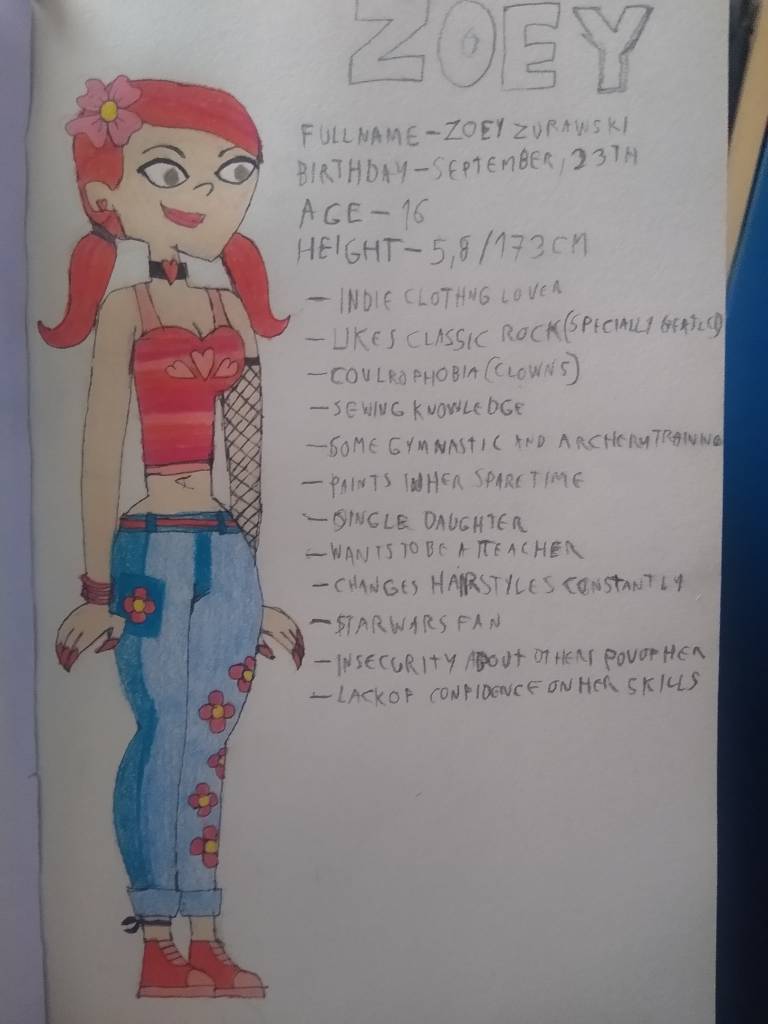 ZOEY
FULLNAME - ZOEY ZURAWSKI
BIRTHDAY - SEPTEMBER, 23TH
AGE - 16
HEIGHT - 5,8/173CM
- INDIE CLOTHNG LOVER
- LIKES CLASSIC ROCK (SPECIALLY BEATLES)
- COULROPHOBIA (CLOWNS)
- SEWING KNOWLEDGE
- SOME GYMNASTIC AND ARCHERY TRAINING
- PAINTS IN HER SPARE TIME
- SINGLE DAUGHTER
- WANTS TO BE A TEACHER
- CHANGES HAIRSTYLES CONSTANTLY
- STAR WARS FAN
- INSECURITY ABOUT OTHERS POV OF HER
- LACK OF CONFIDENCE ON HER SKILLS